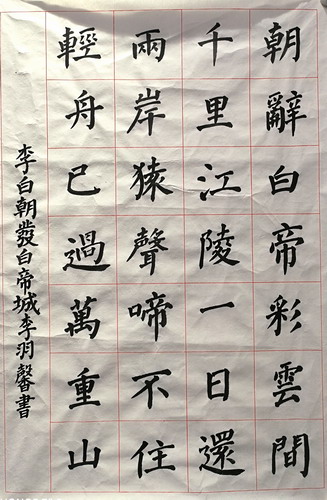 朝辭白帝彩雲間
千里江陵一日還
兩岸猿聲啼不住
輕舟已過萬重山
李白朝發白帝城李羽馨書